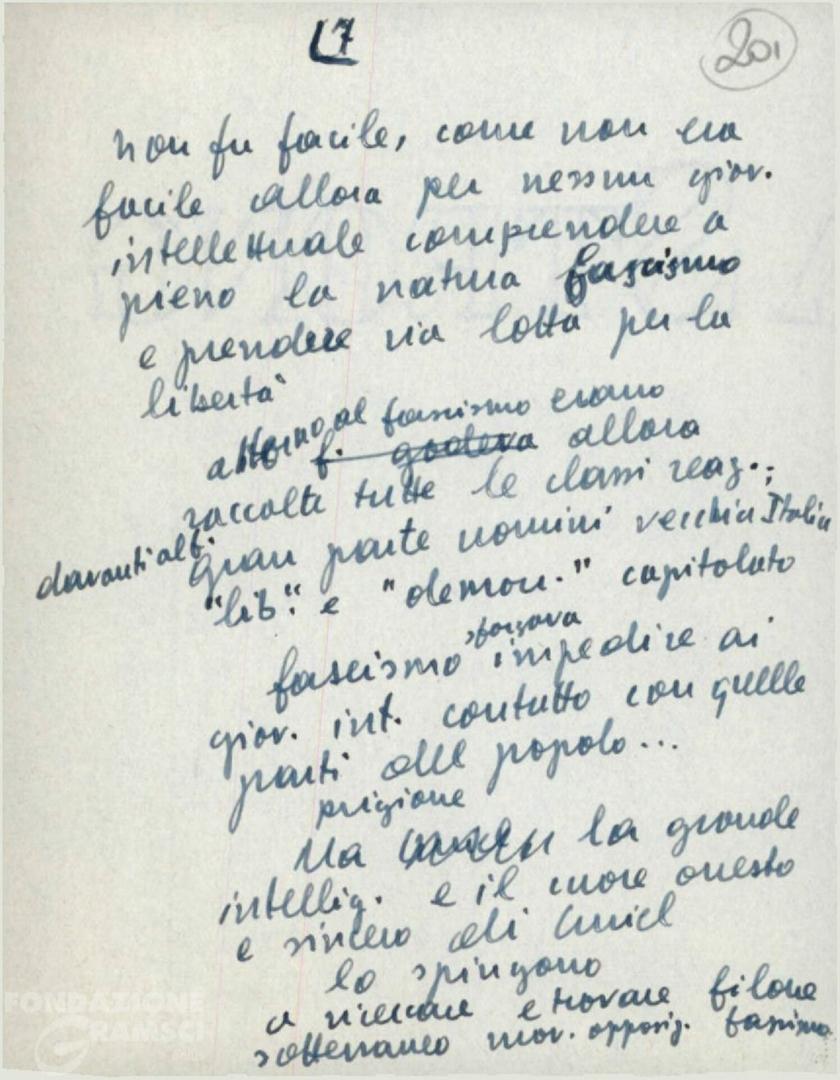 7
201
non fu facile, come non era
facile allora per nessun giov.
intellettuale comprendere a
pieno la natura fascismo
e prendere via lotta per la
libertà
attorno al fascismo erano
f. godeva allora
raccolte tutte le classi reaz.;
davanti al f.
gran parte uomini vecchia Italia
"lib." e "democr." capitolato
sforzava
fascismo impedire ai
giov. int. contatto con quelle
parti del popolo...
prigione
Ma la grande
intellig. e il cuore onesto
e sincero di
lo spingono
a ricercare e trovare filone
sotterraneo mov. opposiz. fascismo
FONDAZIONE
GRAMSCI